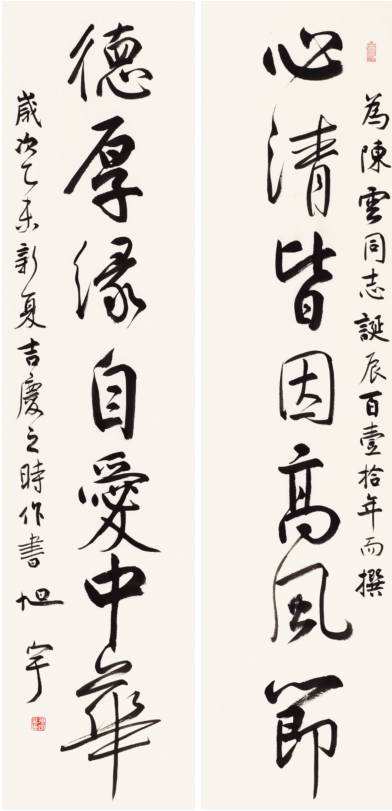 為陳雲同志誕辰百壹拾年而撰
心清皆因高風節
德厚緣自愛中華
歲次乙未新夏吉慶之時作書旭宇